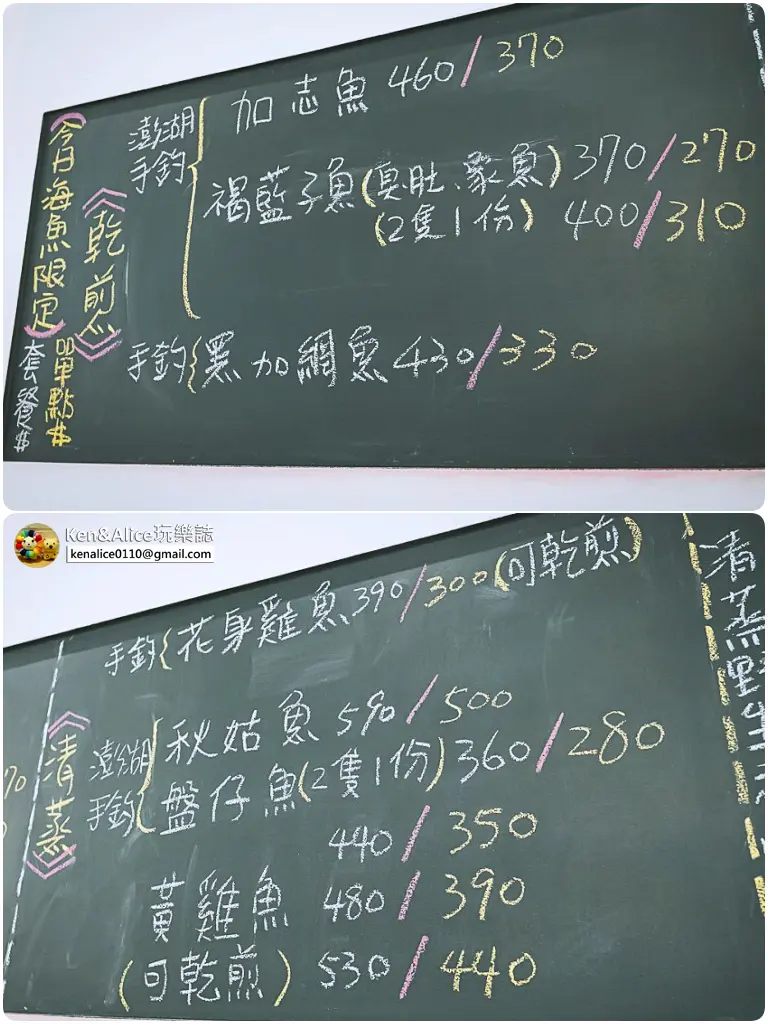 《今日海魚限定》單點$
套餐$
《乾煎》
澎湖
手釣
加志魚 460/370
褐藍子魚(臭肚、象魚) 370/270
(2隻1份) 400/310
手釣{黑加網魚 430/330
Ken&Alice玩樂誌
kenalice0110@gmail.com
《清蒸》
手釣{花身雞魚 390/300(可乾煎)
澎湖
手釣
秋姑魚 590/500
盤仔魚(2隻1份) 360/280
440/350
黃雞魚 480/390
(可乾煎) 530/440
清蒸野生